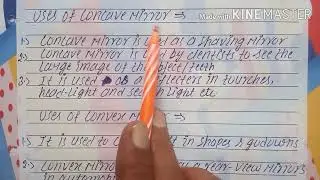 Uses of Concave Mirror ⇒
Made with KINEMASTER
1·) Concave Mirror is used as a shaving mirror
2·) Concave Mirror is by dentists to see the
large image of the teeth
3·) It is used as reflecters in
head-light and search light etc
Uses of Convex Mirror ⇒
1·) It is used to in shopes & gudowns
2·) Convex Mirror as a rear-view mirrors
in